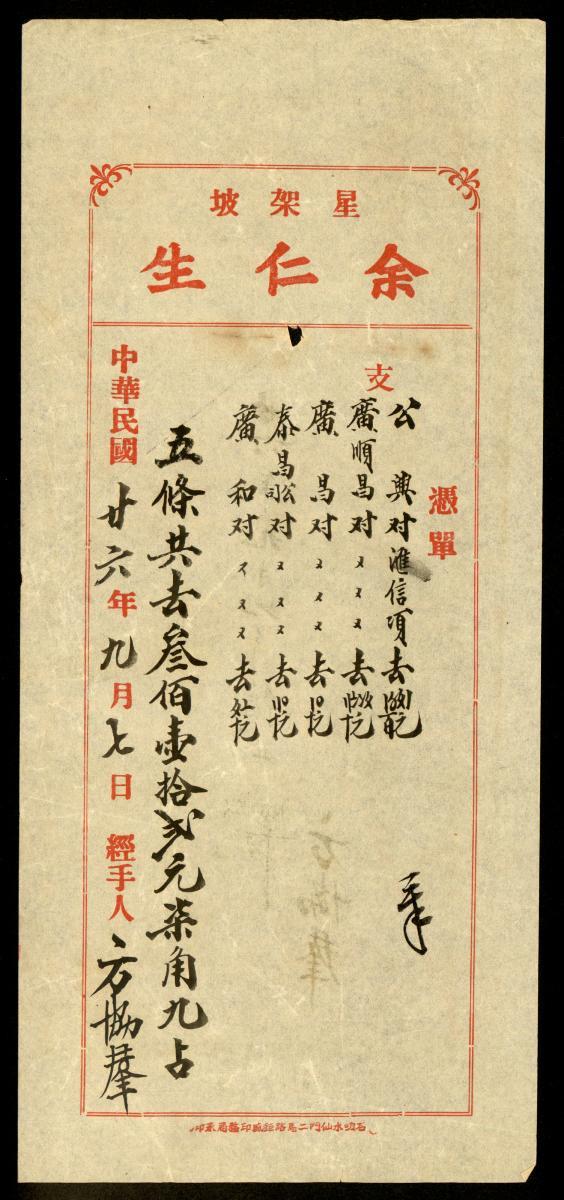 星架坡
余仁生
憑單
支
公興对滙信項去
廣順昌对〃〃〃去
廣昌对〃〃〃去
泰昌公司对〃〃〃去
廣和对〃〃〃去
五條共去叁佰壹拾弍元柒角九占
中華民國廿六年九月七日 經手人 方協羣